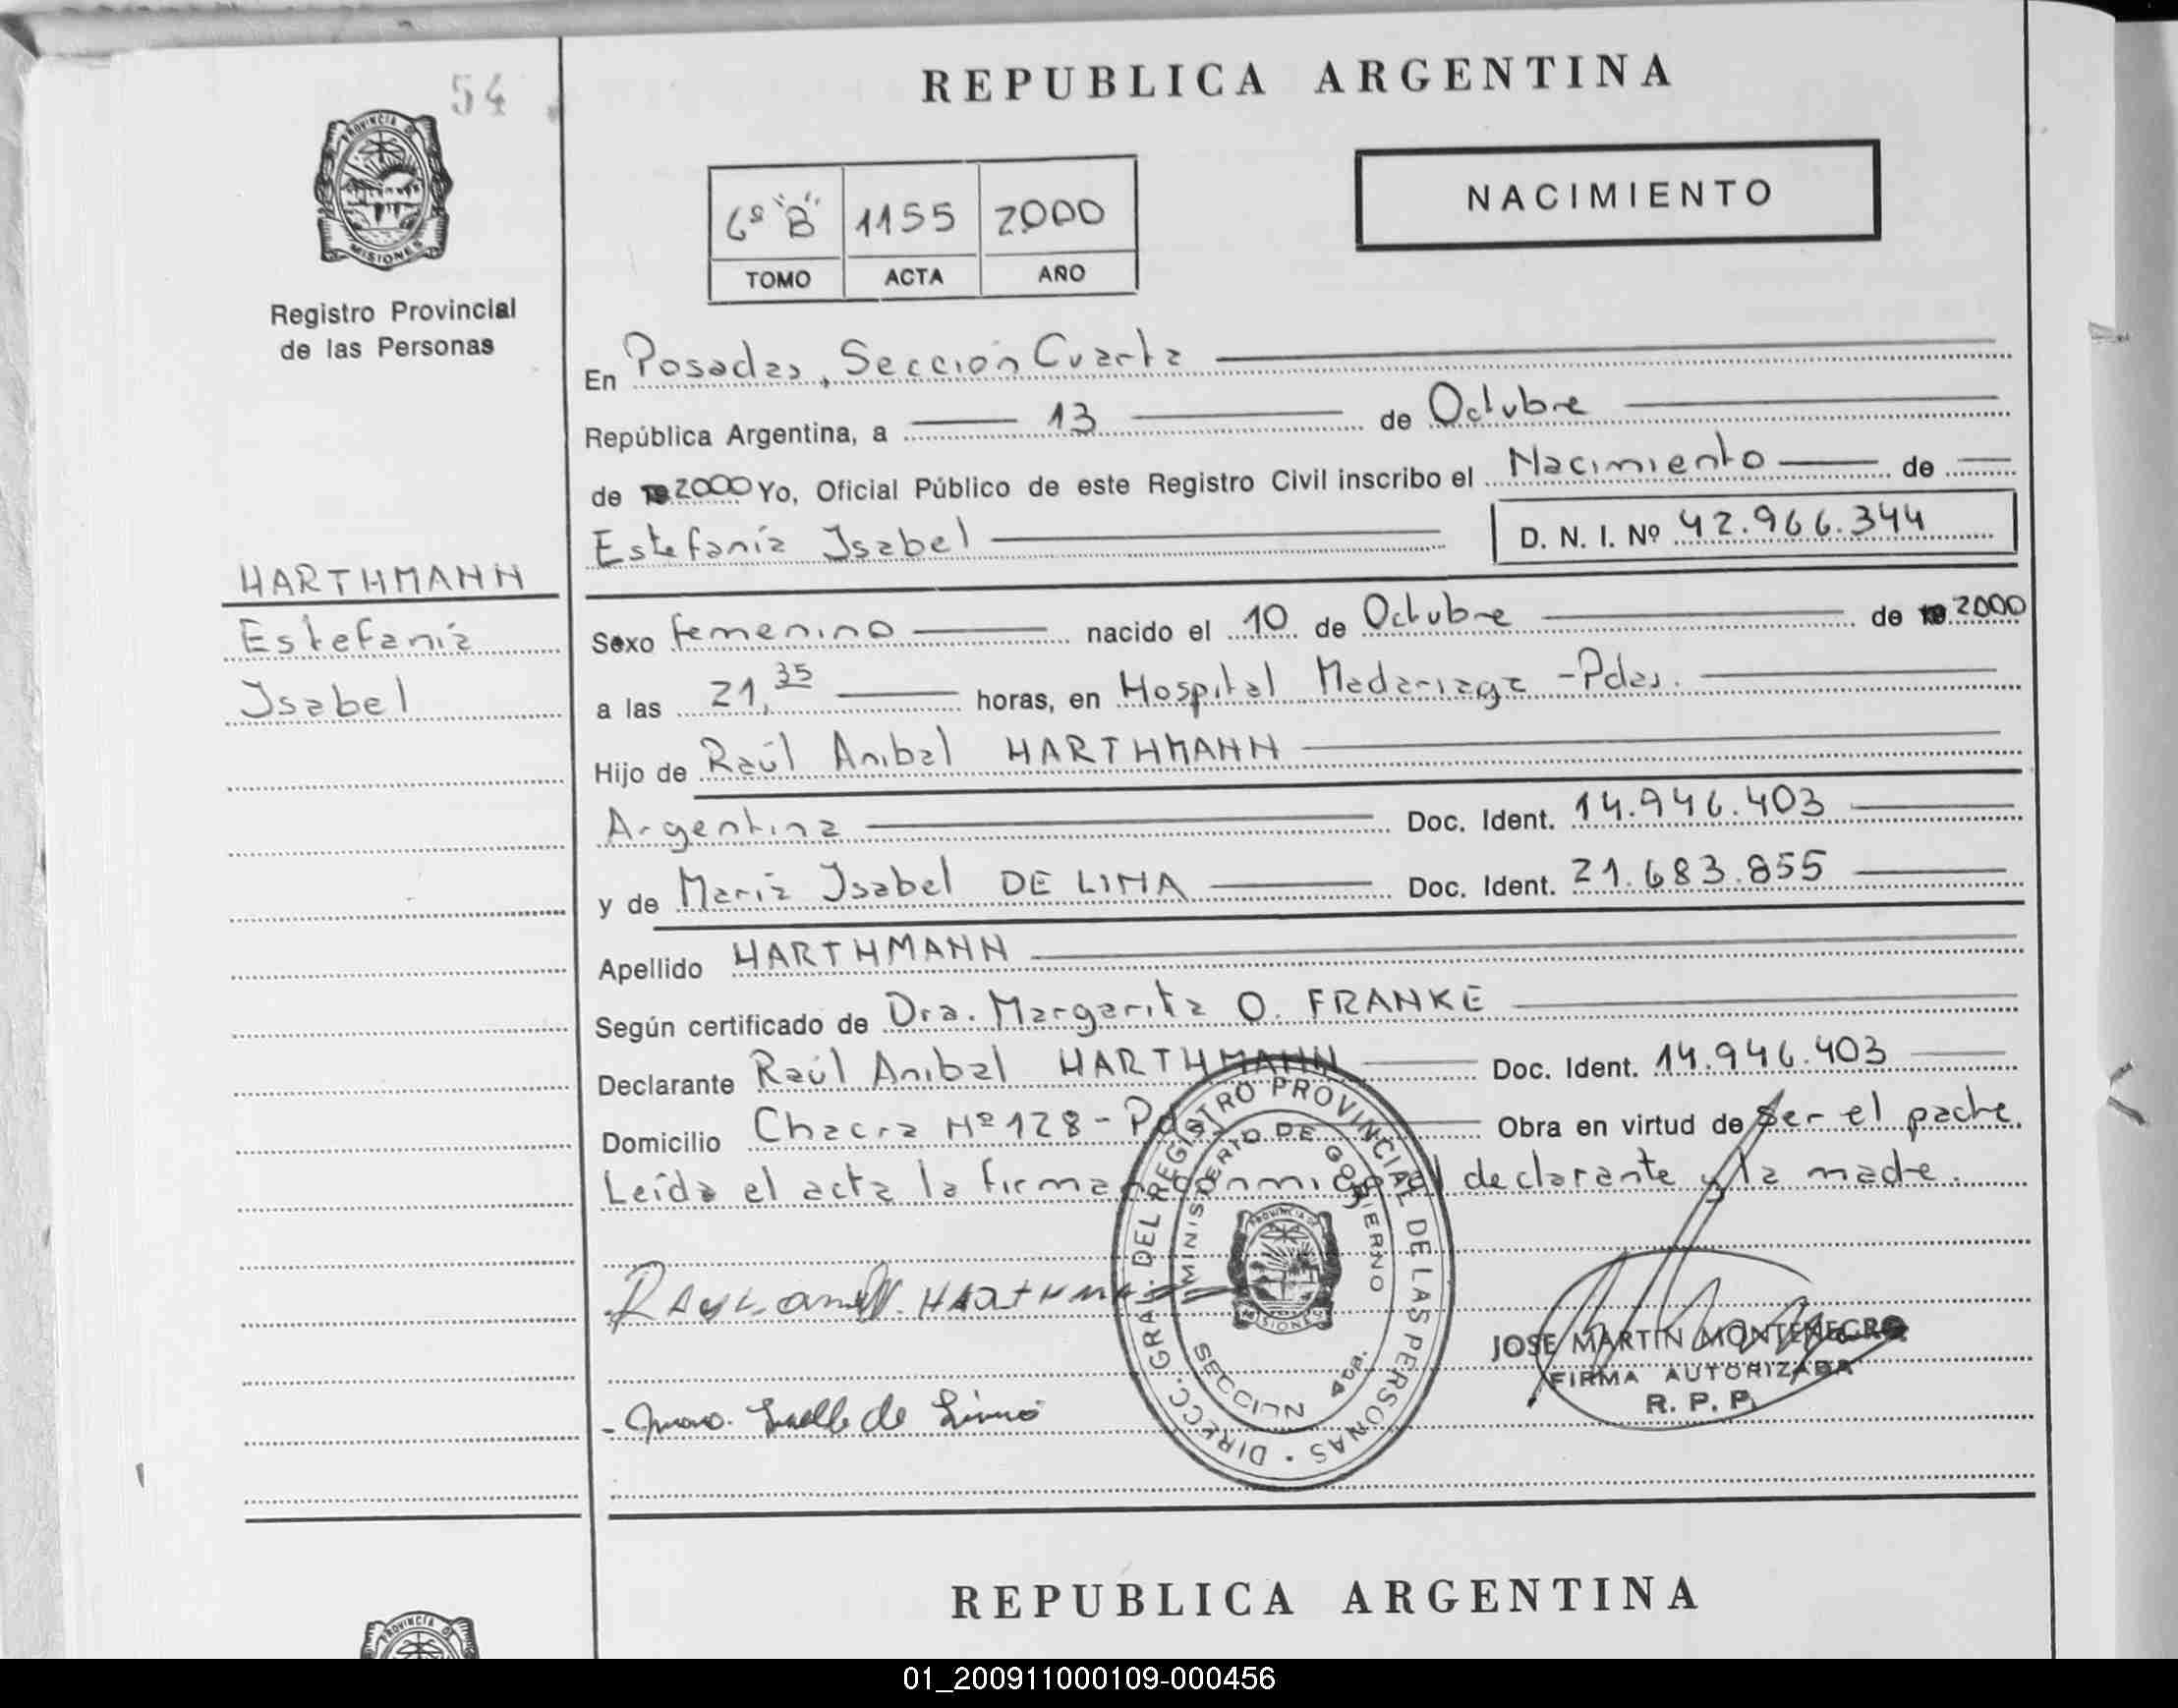 54
REPUBLICA ARGENTINA
PROVINCIA DE
MISIONES
6º "B" 1155 2000
TOMO ACTA AÑO
NACIMIENTO
Registro Provincial
de las Personas
En Posadas, Sección Cuarta
República Argentina, a 13 de Octubre
de 2000 Yo, Oficial Público de este Registro Civil inscribo el Nacimiento de
Estefanía Isabel D. N. I. Nº 42.966.344
HARTHMANN
Estefanía
Isabel
Sexo femenino nacido el 10 de Octubre de 2000
a las 21,35 horas, en Hospital Madariaga - Pdas.
Hijo de Raúl Anibal HARTHMANN
Argentina Doc. Ident. 14.946.403
y de María Isabel DE LIMA Doc. Ident. 21.683.855
Apellido HARTHMANN
Según certificado de Dra. Margarita O. FRANKE
Declarante Raúl Anibal HARTHMANN Doc. Ident. 14.946.403
Domicilio Chacra Nº 128 - Pdas Obra en virtud de ser el padre.
Leída el acta la firman conmigo el declarante y la madre.
DIRECC. GRAL. DEL REGISTRO PROVINCIAL DE LAS PERSONAS
MINISTERIO DE GOBIERNO
PROVINCIA DE
MISIONES
SECCION 4ta.
JOSE MARTIN MONTENEGRO
FIRMA AUTORIZADA
R. P. P.
REPUBLICA ARGENTINA
PROVINCIA DE
01_200911000109-000456